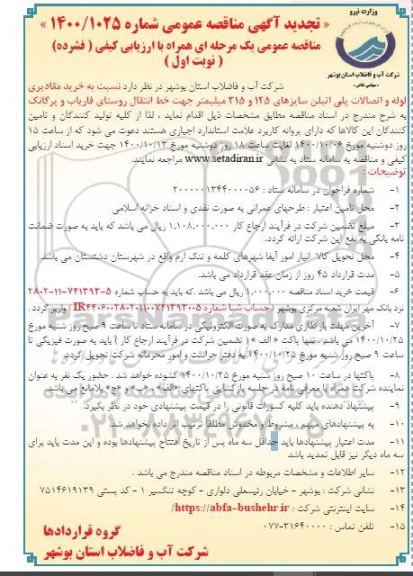 وزارت نیرو
شرکت آب و فاضلاب استان بوشهر
« تجدید آگهی مناقصه عمومی شماره ۱۴۰۰/۱۰۲۵ »
مناقصه عمومی یک مرحله ای همراه با ارزیابی کیفی ( فشرده )
( نوبت اول )
شرکت آب و فاضلاب استان بوشهر در نظر دارد نسبت به خرید مقادیری
لوله و اتصالات پلی اتیلن سایزهای ۱۲۵ و ۳۱۵ میلیمتر جهت خط انتقال روستای فاریاب و پرگانک
به شرح مندرج در اسناد مناقصه مطابق مشخصات ذیل اقدام نماید ، لذا از کلیه تولید کنندگان و تامین
کنندگان این کالاها که دارای پروانه کاربرد علامت استاندارد اجباری هستند دعوت می شود که از ساعت ۱۵
روز دوشنبه مورخ ۱۴۰۰/۱۰/۰۶ لغایت ساعت ۱۸ روز دوشنبه مورخ ۱۴۰۰/۱۰/۱۳ جهت خرید اسناد ارزیابی
کیفی و مناقصه به سامانه ستاد به نشانی www.setadiran.ir مراجعه نمایند.
توضیحات :
۱- شماره فراخوان در سامانه ستاد : ۲۰۰۰۰۰۱۳۴۴۰۰۰۰۵۶
۲- محل تامین اعتبار : طرحهای عمرانی به صورت نقدی و اسناد خزانه اسلامی
۳- مبلغ تضمین شرکت در فرآیند ارجاع کار ۱,۱۰۸,۰۰۰,۰۰۰ ریال می باشد که باید به صورت ضمانت
نامه بانکی به نفع این شرکت ارائه گردد.
۴- محل تحویل کالا انبار امور آبفا شهرهای کلمه و تنگ ارم واقع در شهرستان دشتستان می باشد.
۵- مدت قرارداد ۴۵ روز از زمان عقد قرارداد می باشد.
۶- قیمت خرید اسناد مناقصه ۱,۰۰۰,۰۰۰ ریال می باشد .که باید به حساب شماره ۵-۷۴۱۳۹۳-۱۱-۲۸۰۲
نزد بانک مهر ایران شعبه مرکزی بوشهر ( حساب شبا شماره IR۴۴۰۶۰۰۲۸۰۲۰۱۱۰۰۷۴۱۳۹۳۰۰۵ ) واریز گردد .
۷- آخرین مهلت بارگذاری مدارک به صورت الکترونیکی در سامانه ستاد تا ساعت ۹ صبح روز شنبه مورخ
۱۴۰۰/۱۰/۲۵ می باشد. ضمنا پاکت « الف » ( تضمین شرکت در فرآیند ارجاع کار ) باید به صورت فیزیکی تا
ساعت ۹ صبح روز شنبه مورخ ۱۴۰۰/۱۰/۲۵ به دفتر حراست و امور محرمانه شرکت تحویل گردد.
۸- پاکتها در ساعت ۱۰ صبح روز شنبه مورخ ۱۴۰۰/۱۰/۲۵ گشوده خواهد شد . حضور یک نفر به عنوان
نماینده شرکت همراه با معرفی نامه در جلسه بازگشایی پاکتهای «الف» ،«ب» و «ج» بلامانع می باشد.
۹- پیشنهاد دهنده باید کلیه کسورات قانونی را در قیمت پیشنهادی خود در نظر بگیرد.
۱۰- به پیشنهادهای مبهم ، مشروط و مخدوش مطلقاً ترتیب اثر داده نخواهد شد.
۱۱- مدت اعتبار پیشنهادها باید حداقل سه ماه پس از تاریخ افتتاح پیشنهادها بوده و این مدت باید برای
سه ماه دیگر نیز قابل تمدید باشد
۱۲- سایر اطلاعات و مشخصات مربوطه در اسناد مناقصه مندرج می باشد .
۱۳- نشانی شرکت : بوشهر - خیابان رئیسعلی دلواری - کوچه تنگسیر ۱ - کد پستی ۷۵۱۴۶۱۹۱۳۹
۱۴- سایت اینترنتی شرکت : https://abfa-bushehr.ir/
۱۵- تلفن تماس : ۳۱۶۴۰۰۰۰-۰۷۷
گروه قراردادها
شرکت آب و فاضلاب استان بوشهر